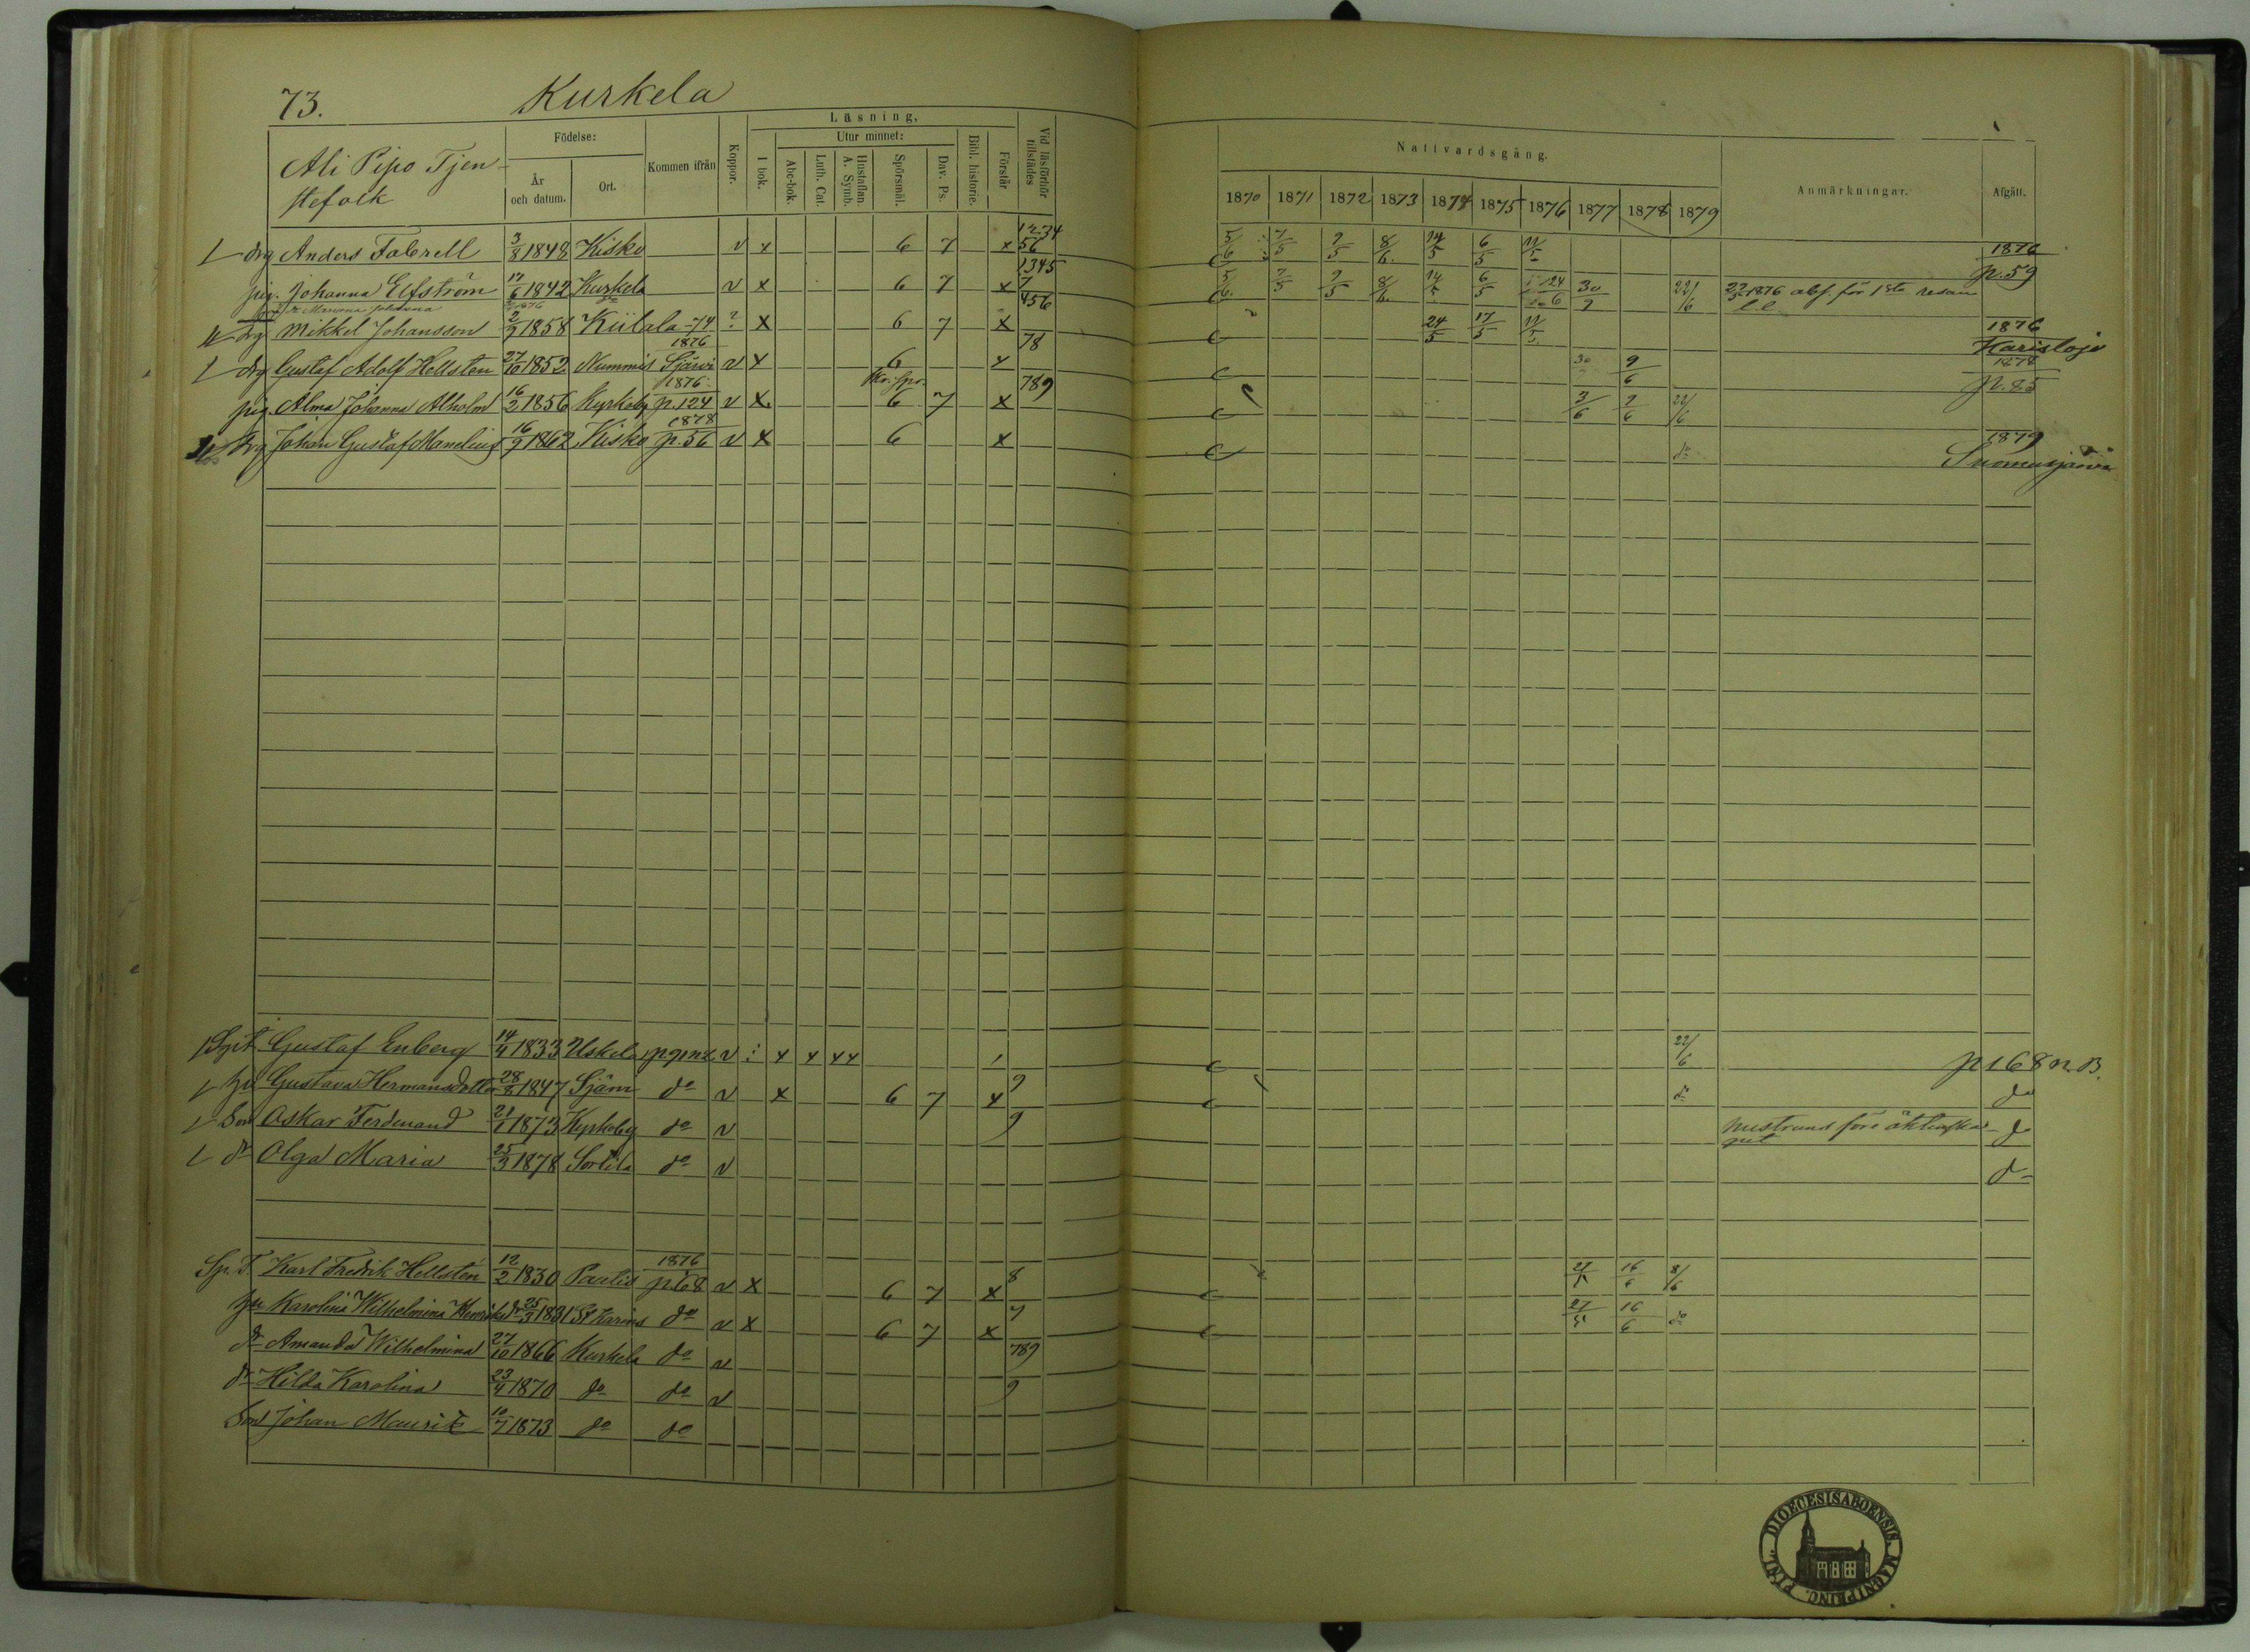 73. Kurkela
Läsning.
Födelse: Utur minnet:
Kommen ifrån Koppor. I bok. Abc-bok. Luth. Cat. Hustaflan. A. Symb. Spörsmål. Dav. Ps. Bibl. historie. Förstår Vid läsförhör tillstädes
År och datum. Ort.
Nattvardsgång.
Anmärkningar. Afgått.
1870 1871 1872 1873 1874 1875 1876 1877 1878 1879
Ali Pipo Tjen-
stefolk
drg Anders Fabrell 3/8 1848 Kisko v x 6 7 x 1234 56 5/6 7/5 7/5 8/6. 14/5 6/5 11/5 1876 p. 59
pig. Johanna Elfström 17/6 1842 Kurkela v x 6 7 x 1345 7 5/6. 7/5 7/5 8/6. 14/5 6/5 30/7 22/6 1876 abs. för 1sta resan
Johanna
drg Mikkel Johansson 2/7 1858 Kiikala -74 ? x 6 7 x 456 24/5 17/5 11/5 1876 Karislojo
drg Gustaf Adolf Hellsten 27/10 1852 Nummis 1876 Sjärvi v x 6 x 78 30/7 9/6 1878 p. 85
pig. Alma Johanna Alholm 16/2 1856 Kyrkoby 1876 p. 124 v x 6 7 x 789 3/6 9/6 22/6
drg Johan Gustaf Manelius 16/9 1862 Kisko 1878 p. 56 v x 6 x do 1879 Suomusjärvi
Gustaf Enberg 14/4 1833 Uskela v x x xx 22/6 p 168 n. B.
hu Gustava Hermansdotter 28/8 1847 Sjärvi do v x 6 7 x 9 do do
Son Oskar Ferdinand 21/1 1873 Kyrkoby do v 9 do
dr Olga Maria 25/3 1878 Sortila do v do
Sp. T. Karl Fredrik Hellsten 12/2 1830 Paatis 1876 p. 68 v x 6 7 x 8 27/5 16/6 8/6
hu Karolina Wilhelmina Henriksdr 25/3 1831 St Karins do v x 6 7 x 7 27/5 16/6 do
dr Amanda Wilhelmina 27/10 1866 Kurkela do v 789
dr Hilda Karolina 23/4 1870 do do v 9
Son Johan Maurits 10/7 1873 do do